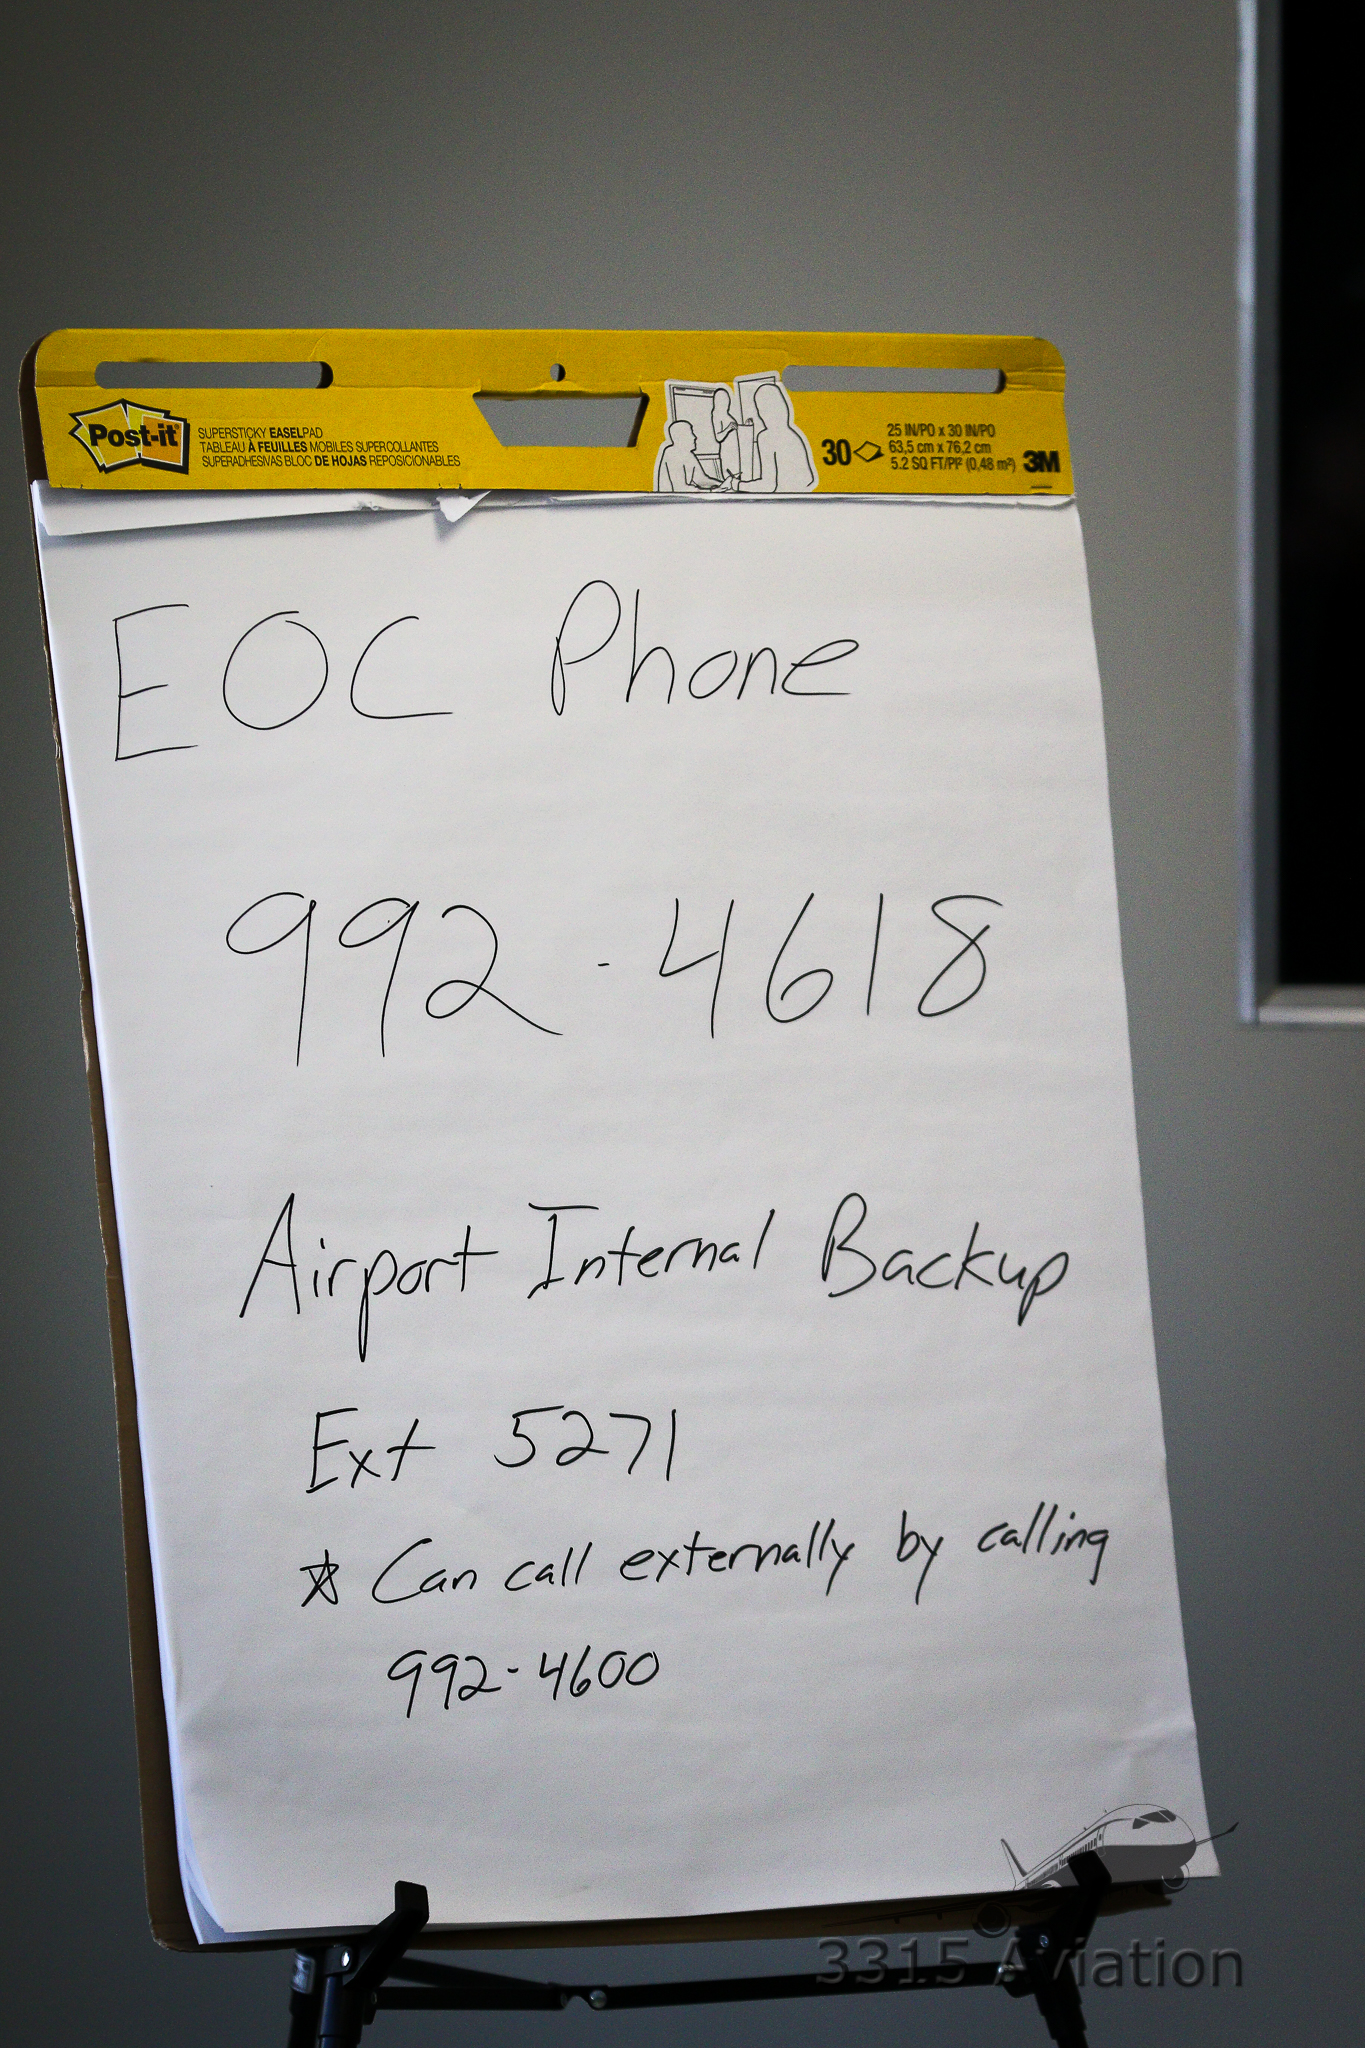 Post-it
SUPERSTICKY EASELPAD
TABLEAU À FEUILLES MOBILES SUPERCOLLANTES
SUPERADHESIVAS BLOC DE HOJAS REPOSICIONABLES
30
25 IN/PO x 30 IN/PO
63,5 cm x 76,2 cm
5.2 SQ FT/PI² (0,48 m²)
3M
EOC Phone
992-4618
Airport Internal Backup
Ext 5271
☆ Can call externally by calling
992-4600
3315 Aviation